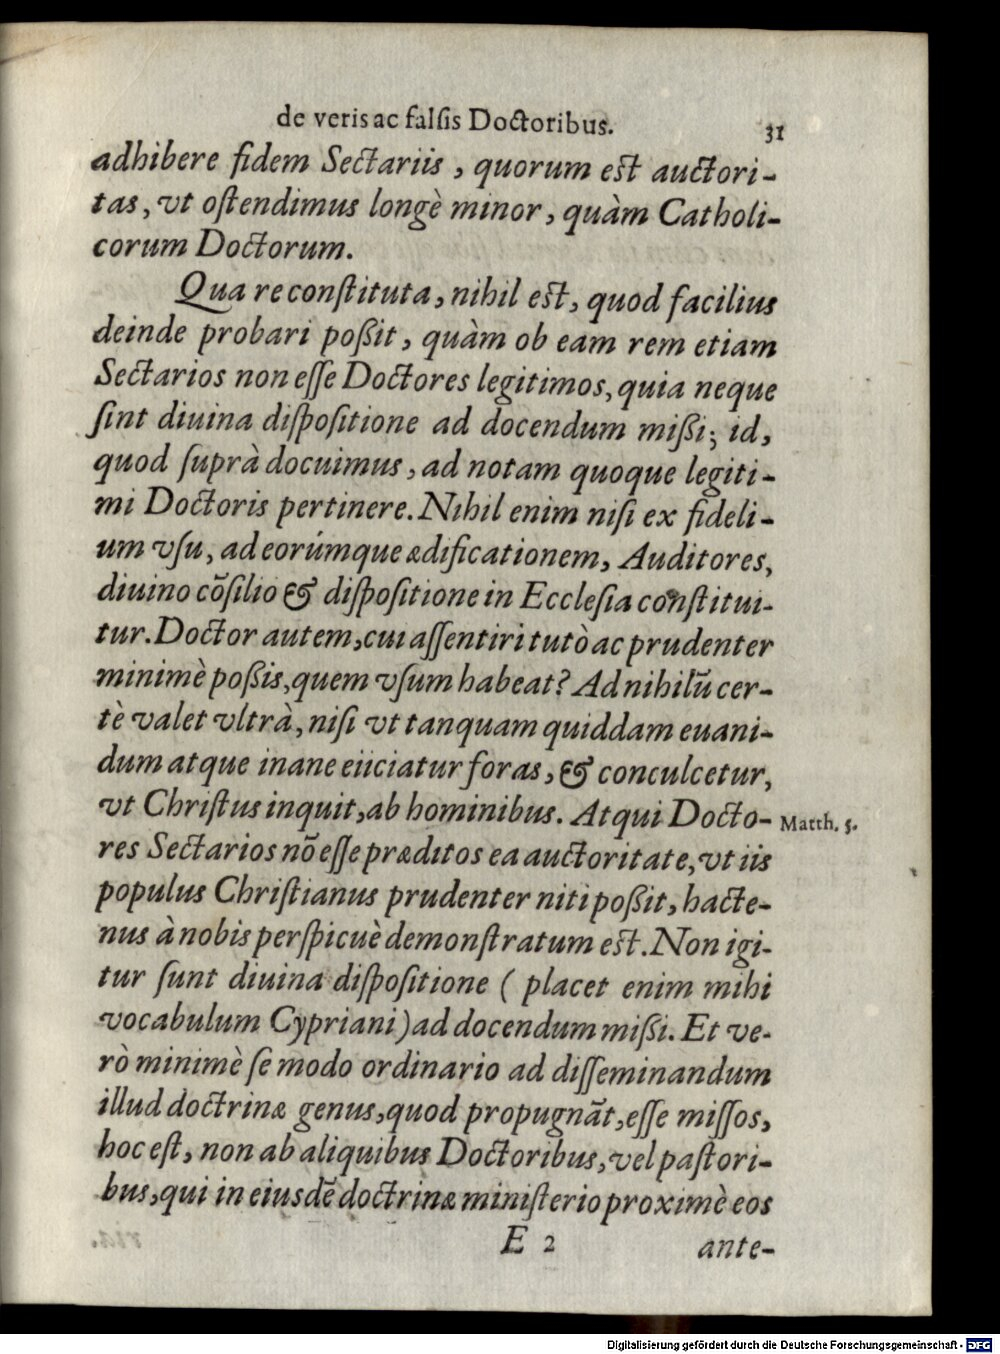 de veris ac falſis Doctoribus. 31
adhibere fidem Sectariis, quorum est auctori-
tas, vt oſtendimus longè minor, quàm Catholi-
corum Doctorum.
Qua re conſtituta, nihil est, quod facilius
deinde probari poßit, quàm ob eam rem etiam
Sectarios non eſſe Doctores legitimos, quia neque
ſint diuina diſpoſitione ad docendum mißi; id,
quod ſuprà docuimus, ad notam quoque legiti-
mi Doctoris pertinere. Nihil enim niſi ex fideli-
um vſu, ad eorúmque ædificationem, Auditores,
diuino cõſilio & diſpoſitione in Eccleſia conſtitui-
tur. Doctor autem, cui aſſentiri tutò ac prudenter
minimè poßis, quem vſum habeat? Ad nihilũ cer-
tè valet vltrà, niſi vt tanquam quiddam euani-
dum atque inane eiiciatur foras, & conculcetur,
vt Chriſtus inquit, ab hominibus. Atqui Docto-
Matth. 5.
res Sectarios nõ eſſe præditos ea auctoritate, vt iis
populus Chriſtianus prudenter niti poßit, hacte-
nus à nobis perſpicuè demonſtratum est. Non igi-
tur ſunt diuina diſpoſitione ( placet enim mihi
vocabulum Cypriani) ad docendum mißi. Et ve-
rò minimè ſe modo ordinario ad diſſeminandum
illud doctrinæ genus, quod propugnãt, eſſe miſſos,
hoc eſt, non ab aliquibus Doctoribus, vel paſtori-
bus, qui in eiusdẽ doctrinæ miniſterio proximè eos
E 2 ante-
Digitalisierung gefördert durch die Deutsche Forschungsgemeinschaft - DFG